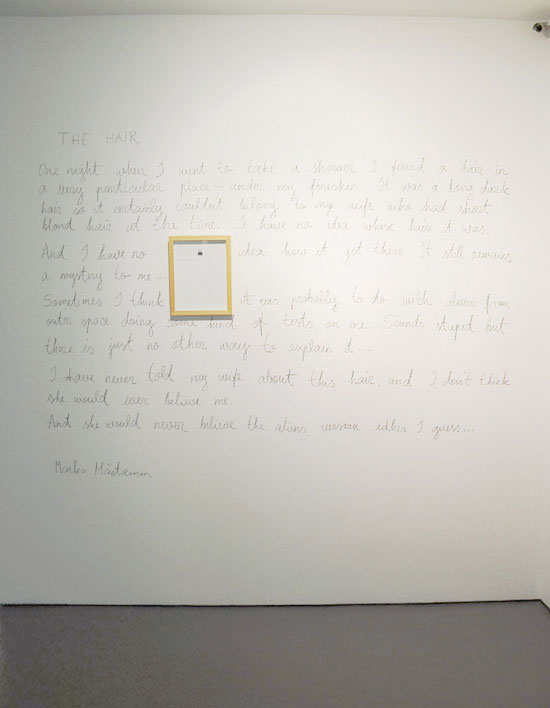 THE HAIR
One night when I went to take a shower I found a hair in
a very particular place – under my foreskin. It was a long dark
hair so it certainly couldnt belong to my wife who had short
blond hair at the time. I have no idea whose hair it was.
And I have no idea how it got there. It still remains
a mystery to me...
Sometimes I think it was probably to do with aliens from
outer space doing some kind of tests on me. Sounds stupid but
there is just no other way to explain it...
I have never told my wife about this hair, and I don't think
she would ever believe me.
And she would never believe the aliens version either I guess...
Marko Mäetamm